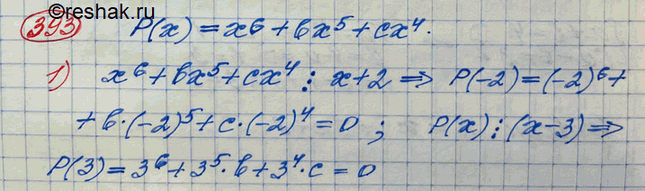 ©reshak.ru
393 P(x) = x⁶ + bx⁵ + cx⁴.
1) x⁶ + bx⁵ + cx⁴ ⋮ x + 2 ⇒ P(-2) = (-2)⁶ +
+ b·(-2)⁵ + c·(-2)⁴ = 0 ; P(x) ⋮ (x-3) ⇒
P(3) = 3⁶ + 3⁵·b + 3⁴·c = 0